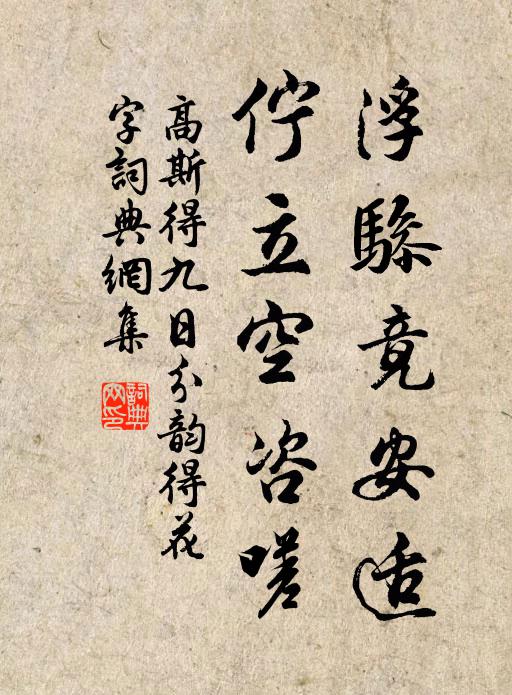 浮驂竟安适
佇立空咨嗟
高斯得九日分韵得花
字詞典網集
詞典
网印